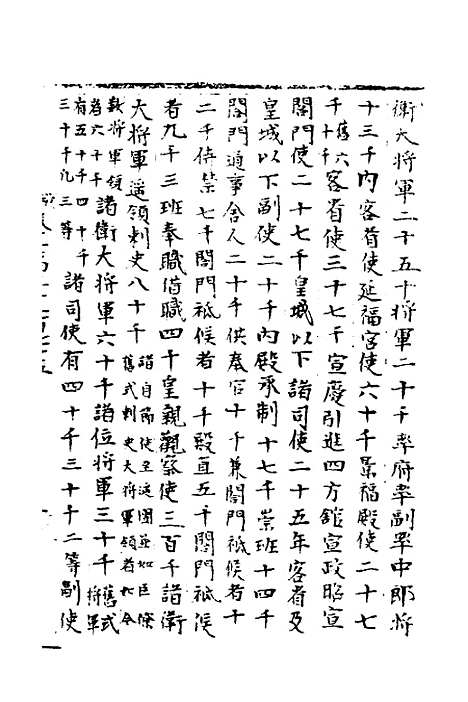 衛大將軍二十五千將軍二十千率府率副率中郎將
十三千內客省使延福宮使六十千景福殿使二十七
千舊六十千客省使三十七千宣慶引進四方館宣政昭宣
閤門使二十七千皇城以下諸司使二十五年客省及
皇城以下副使二十千內殿承制十七千崇班十四千
閤門通事舍人二十千供奉官十千兼閤門祗候者十
二千侍禁七千閤門祗候者十千殿直五千閤門祗候
者九千三班奉職借職四千皇親觀察使三百千諸衛
大將軍遥領刺史八十千諸自節使至遥團並如臣僚舊式刺史大將軍領者
諸衛大將軍六十千諸位將軍三十千舊式將軍
數將軍領者六十千
有五十千四十千三十千凡三等諸司使有四十千三十千二等副使